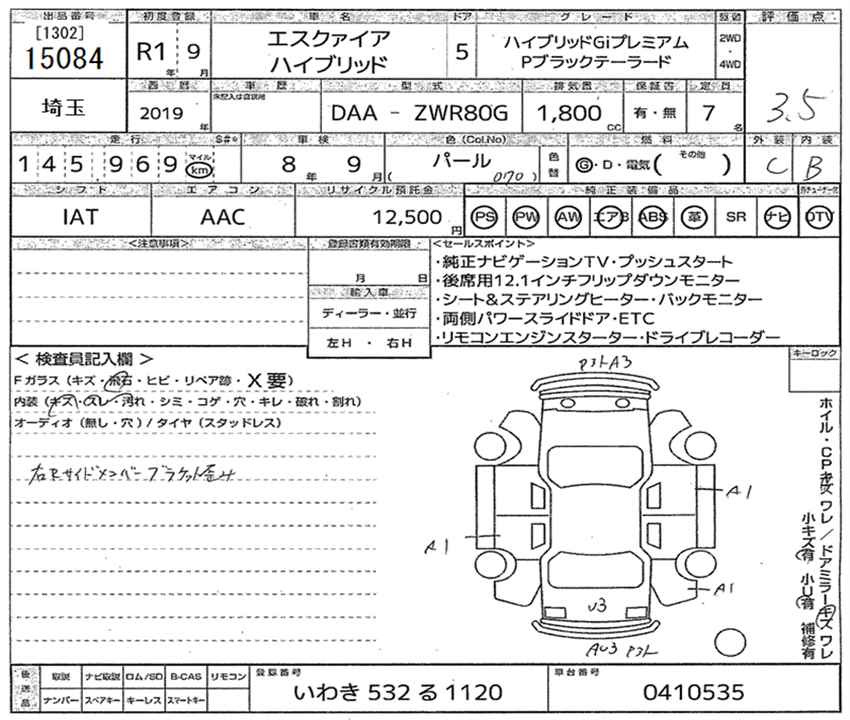 出品番号 初度登録 車名 ドア グレード 駆動 評価点
[1302]
15084 R1年 9月 エスクァイア ハイブリッド 5 ハイブリッドGiプレミアム Pブラックテーラード 2WD・4WD 3.5
西暦 車歴 型式 排気量 保証書 定員
埼玉 2019年 DAA - ZWR80G 1,800cc 有・無 7名
走行 S#* 車検 色(Col,No) 燃料 外装 内装
145,969 マイル km 8年 9月 パール (070) 色替 G・D・電気( その他 ) C B
シフト エアコン リサイクル預託金 純正装備品
IAT AAC 12,500円 PS PW AW エアB ABS 革 SR ナビ DTV
<注意事項> 登録書類有効期限 <セールスポイント>
月 日
輸入車
ディーラー・並行
左H ・ 右H
・純正ナビゲーションTV・プッシュスタート
・後席用12.1インチフリップダウンモニター
・シート&ステアリングヒーター・バックモニター
・両側パワースライドドア・ETC
・リモコンエンジンスターター・ドライブレコーダー
キーロック
< 検査員記入欄 >
Fガラス(キズ・飛石・ヒビ・リペア跡・X要)
内装(キズ・スレ・汚れ・シミ・コゲ・穴・キレ・破れ・割れ)
オーディオ(無し・穴)/タイヤ(スタッドレス)
右Rサイドメンバーブラケット歪み
A3
A1
A1
A1
U3
AU3
ホイル・CPキズ ワレ/ドアミラーキズ ワレ
小キズ有 小U有 補修有
後送品 取説 ナビ取説 ロム/SD B-CAS リモコン
ナンバー スペアキー キーレス スマートキー
登録番号 車台番号
いわき 532 る 1120 0410535